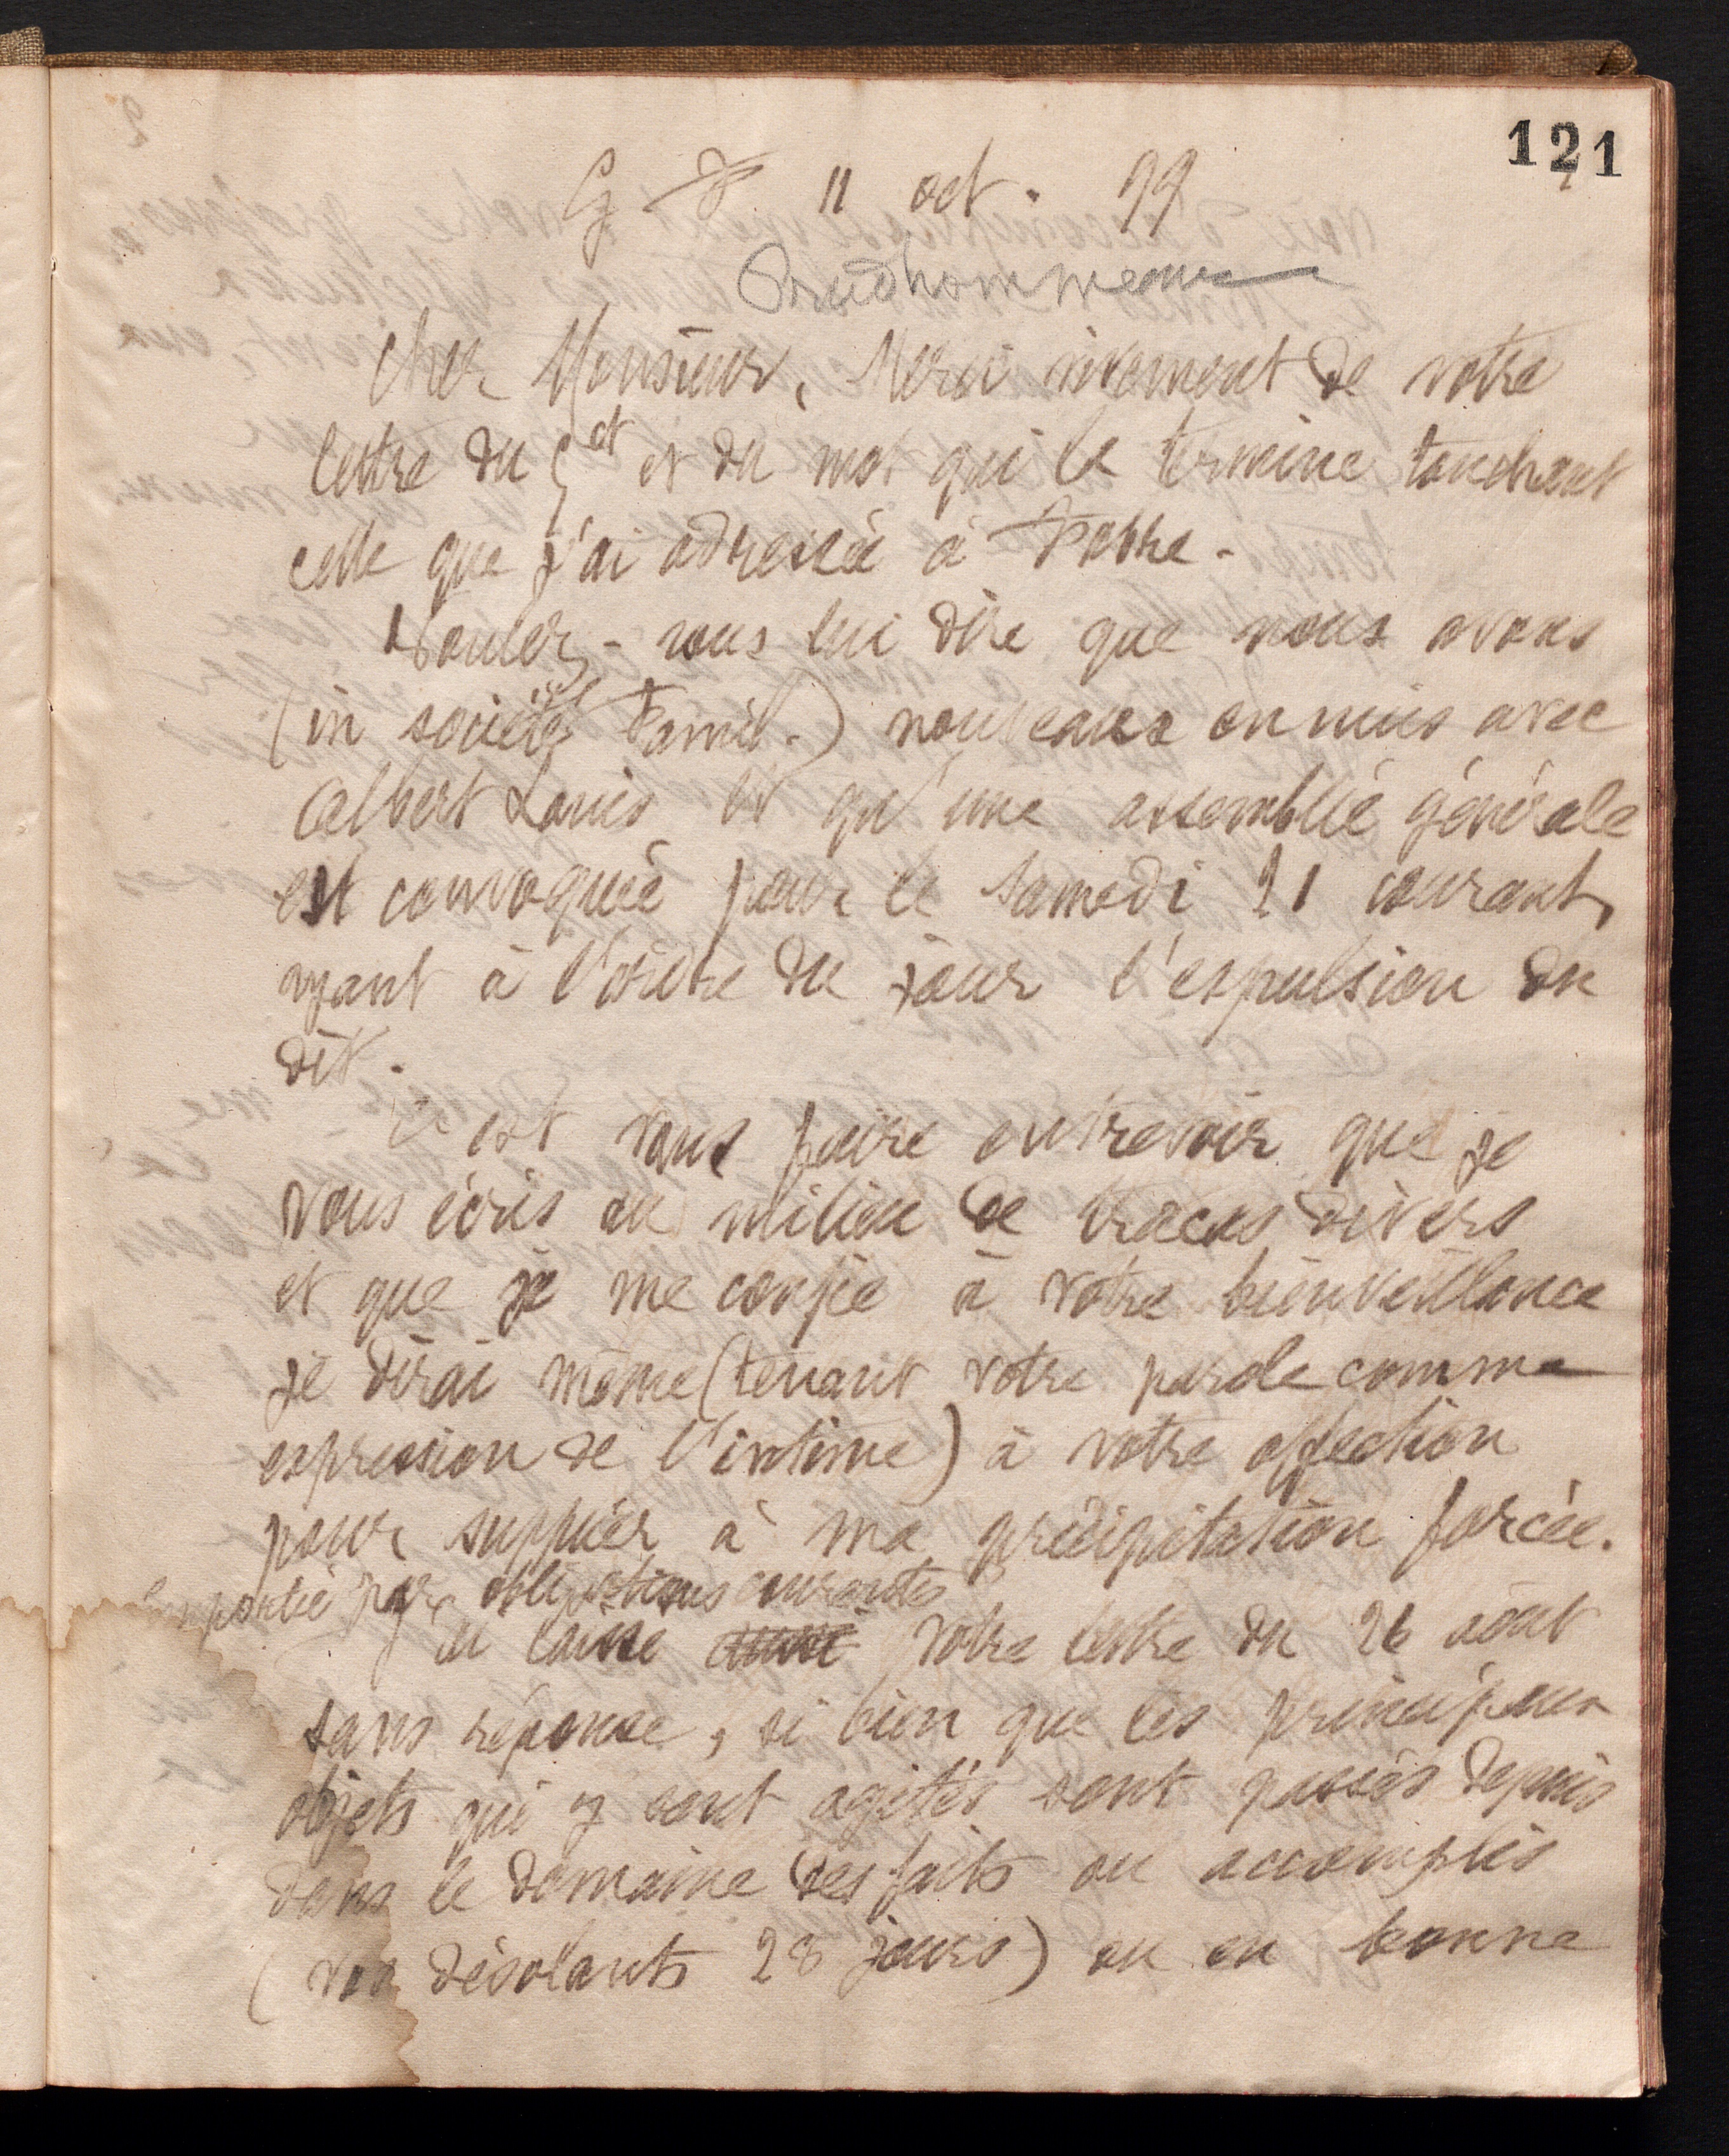 121
G F 11 oct. 99
Prudhommeaux
Cher Monsieur, Merci vivement de votre
lettre du 9 ct et du mot qui la termine touchant
celle que j'ai adressée à Fabre.
Voulez-vous lui dire que nous avons
(in société Famil.) nouveaux ennuis avec
Albert Louis et qu'une assemblée générale
est convoquée pour le samedi 21 courant,
ayant à l'ordre du jour l'expulsion du
dit.
C'est vous faire entrevoir que je
vous écris au milieu de tracas divers
et que je me confie à votre bienveillance
je dirai même (tenant votre parole comme
expression de l'intime) à votre affection
pour suppléer à ma précipitation forcée.
Emportée par obligations courantes
j'ai laissé aussi votre lettre du 26 août
sans réponse, si bien que les principaux
objets qui y sont agités sont passés depuis
dans le domaine des faits ou accomplis
(vos désolants 28 jours) ou en bonne